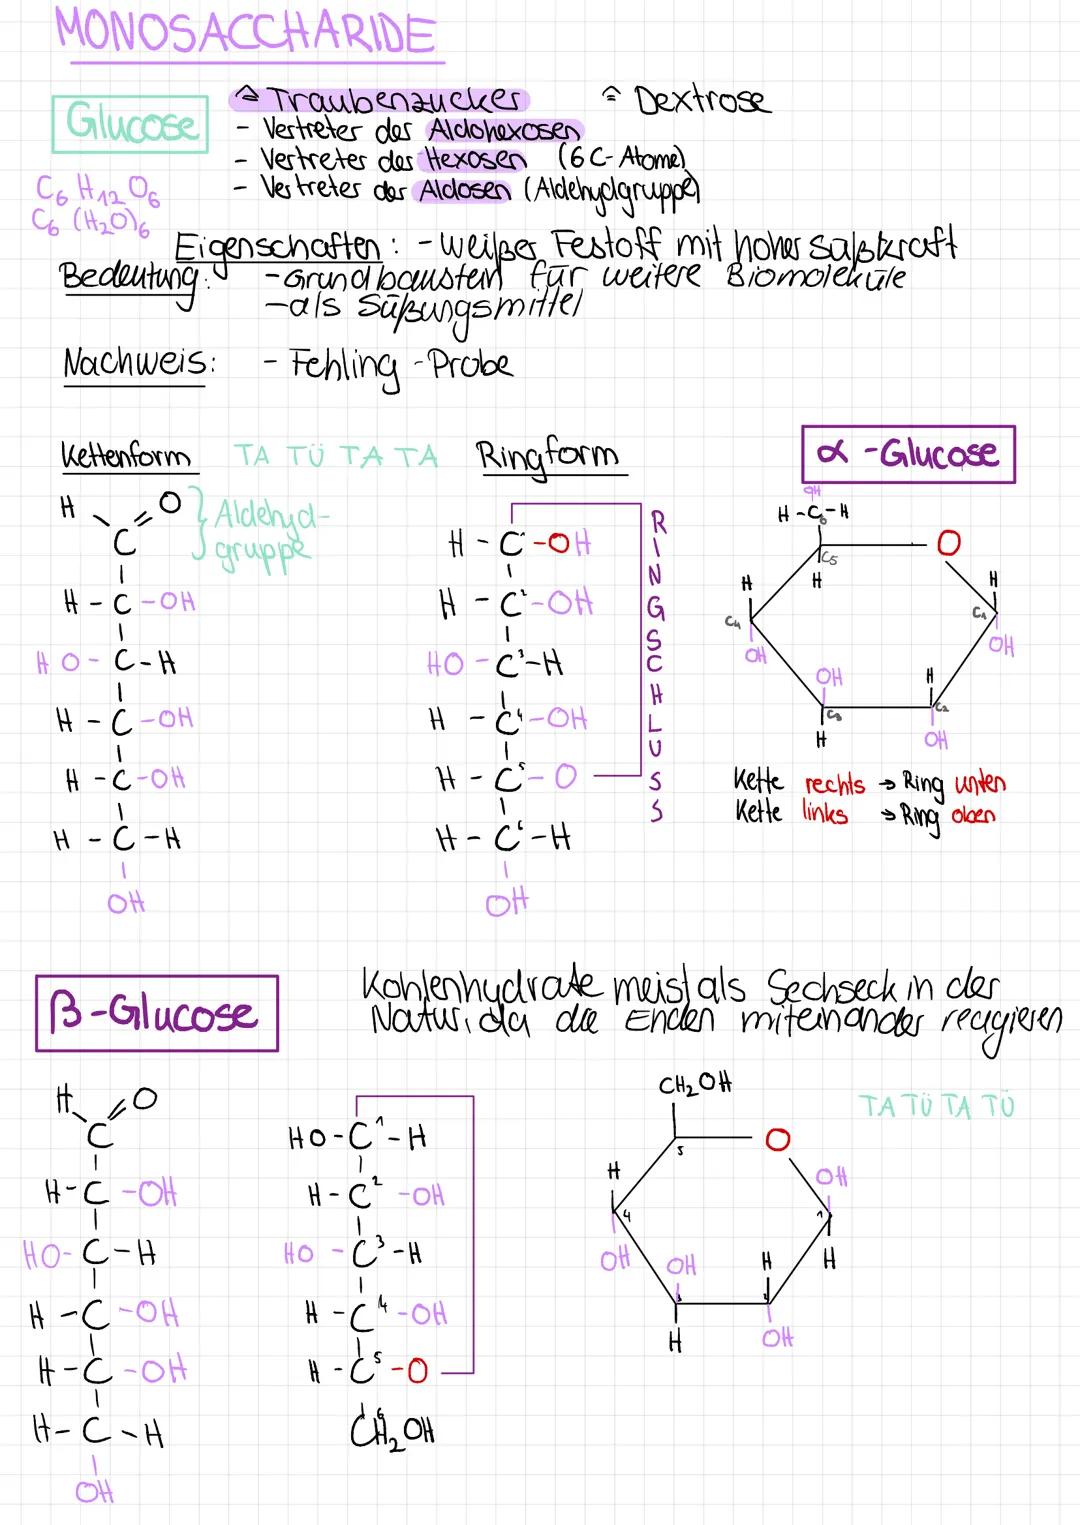 MONOSACCHARIDE
Glucose
≙ Traubenzucker ≙ Dextrose
- Vertreter der Aldohexosen
- Vertreter der Hexosen (6 C-Atome)
- Vertreter der Aldosen (Aldehydgruppe)
C6 H12 O6
C6 (H2O)6
Eigenschaften: - weißer Festoff mit hoher Süßkraft
Bedeutung: - Grundbaustein für weitere Biomoleküle
- als Süßungsmittel
Nachweis: - Fehling-Probe
Kettenform TA TÜ TA TA Ringform
α-Glucose
H O
C
} Aldehyd-
gruppe
H - C - OH
HO - C - H
H - C - OH
H - C - OH
H - C - H
OH
H - C1 - OH
H - C2 - OH
HO - C3 - H
H - C4 - OH
H - C5 - O
H - C6 - H
OH
RINGSCHLUSS
OH
H - C6 - H
C5 O
H H H
C4 C1
OH OH H OH
C3 C2
H OH
Kette rechts → Ring unten
Kette links → Ring oben
β-Glucose
Kohlenhydrate meist als Sechseck in der
Natur, da die Enden miteinander reagieren
H O
C
H - C - OH
HO - C - H
H - C - OH
H - C - OH
H - C - H
OH
HO - C1 - H
H - C2 - OH
HO - C3 - H
H - C4 - OH
H - C5 - O
C6H2OH
CH2OH
TA TÜ TA TÜ
5 O
H OH
4 1
OH OH H H
3 2
H OH